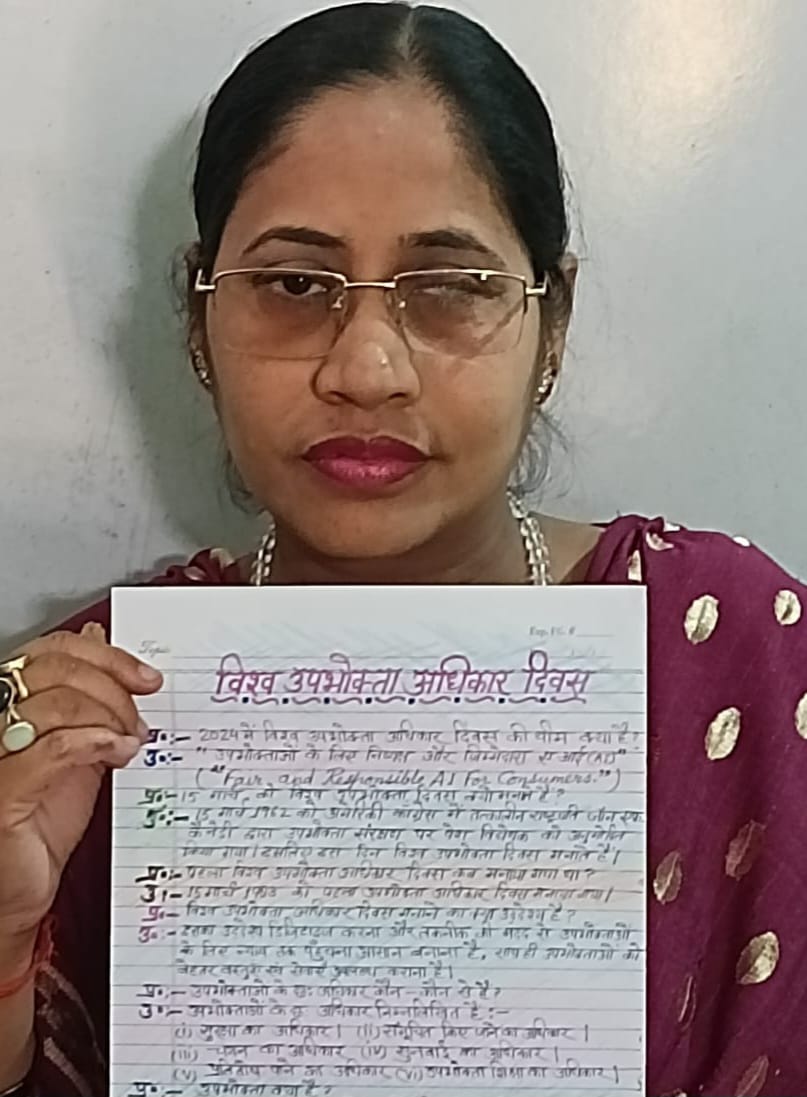 Topic
Exp. / G. #
विश्व उपभोक्ता अधिकार दिवस
प्र०:- 2024 में विश्व उपभोक्ता अधिकार दिवस की थीम क्या है?
उ०:- "उपभोक्ताओं के लिए निष्पक्ष और जिम्मेदारा ए आई (AI)"
("Fair and Responsible AI For Consumers.")
प्र०:- 15 मार्च को विश्व उपभोक्ता दिवस क्यों मनाते है?
उ०:- 15 मार्च 1962 को अमेरिकी कांग्रेस में तत्कालीन राष्ट्रपति जॉन एफ
केनेडी द्वारा उपभोक्ता संरक्षण पर पेश विधेयक को अनुमोदित
किया गया। इसलिए इस दिन विश्व उपभोक्ता दिवस मनाते हैं।
प्र०:- पहला विश्व उपभोक्ता अधिकार दिवस कब मनाया गया था?
उ०:- 15 मार्च 1983 को पहला उपभोक्ता अधिकार दिवस मनाया गया।
प्र०:- विश्व उपभोक्ता अधिकार दिवस मनाने का क्या उद्देश्य है?
उ०:- इसका उद्देश्य डिजिटाइज करना और तकनीक की मदद से उपभोक्ताओं
के लिए न्याय तक पहुँचना आसान बनाना है, साथ ही उपभोक्ताओं को
बेहतर वस्तुएं एवं सेवाएँ उपलब्ध कराना है।
प्र०:- उपभोक्ताओं के छः अधिकार कौन-कौन से है?
उ०:- उपभोक्ताओं के छः अधिकार निम्नलिखित है:-
(i) सुरक्षा का अधिकार। (ii) संसूचित किए जाने का अधिकार।
(iii) चयन का अधिकार (iv) सुनवाई का अधिकार।
(v) प्रतितोष पाने का अधिकार (vi) उपभोक्ता शिक्षा का अधिकार।
प्र०:- उपभोक्ता क्या है?